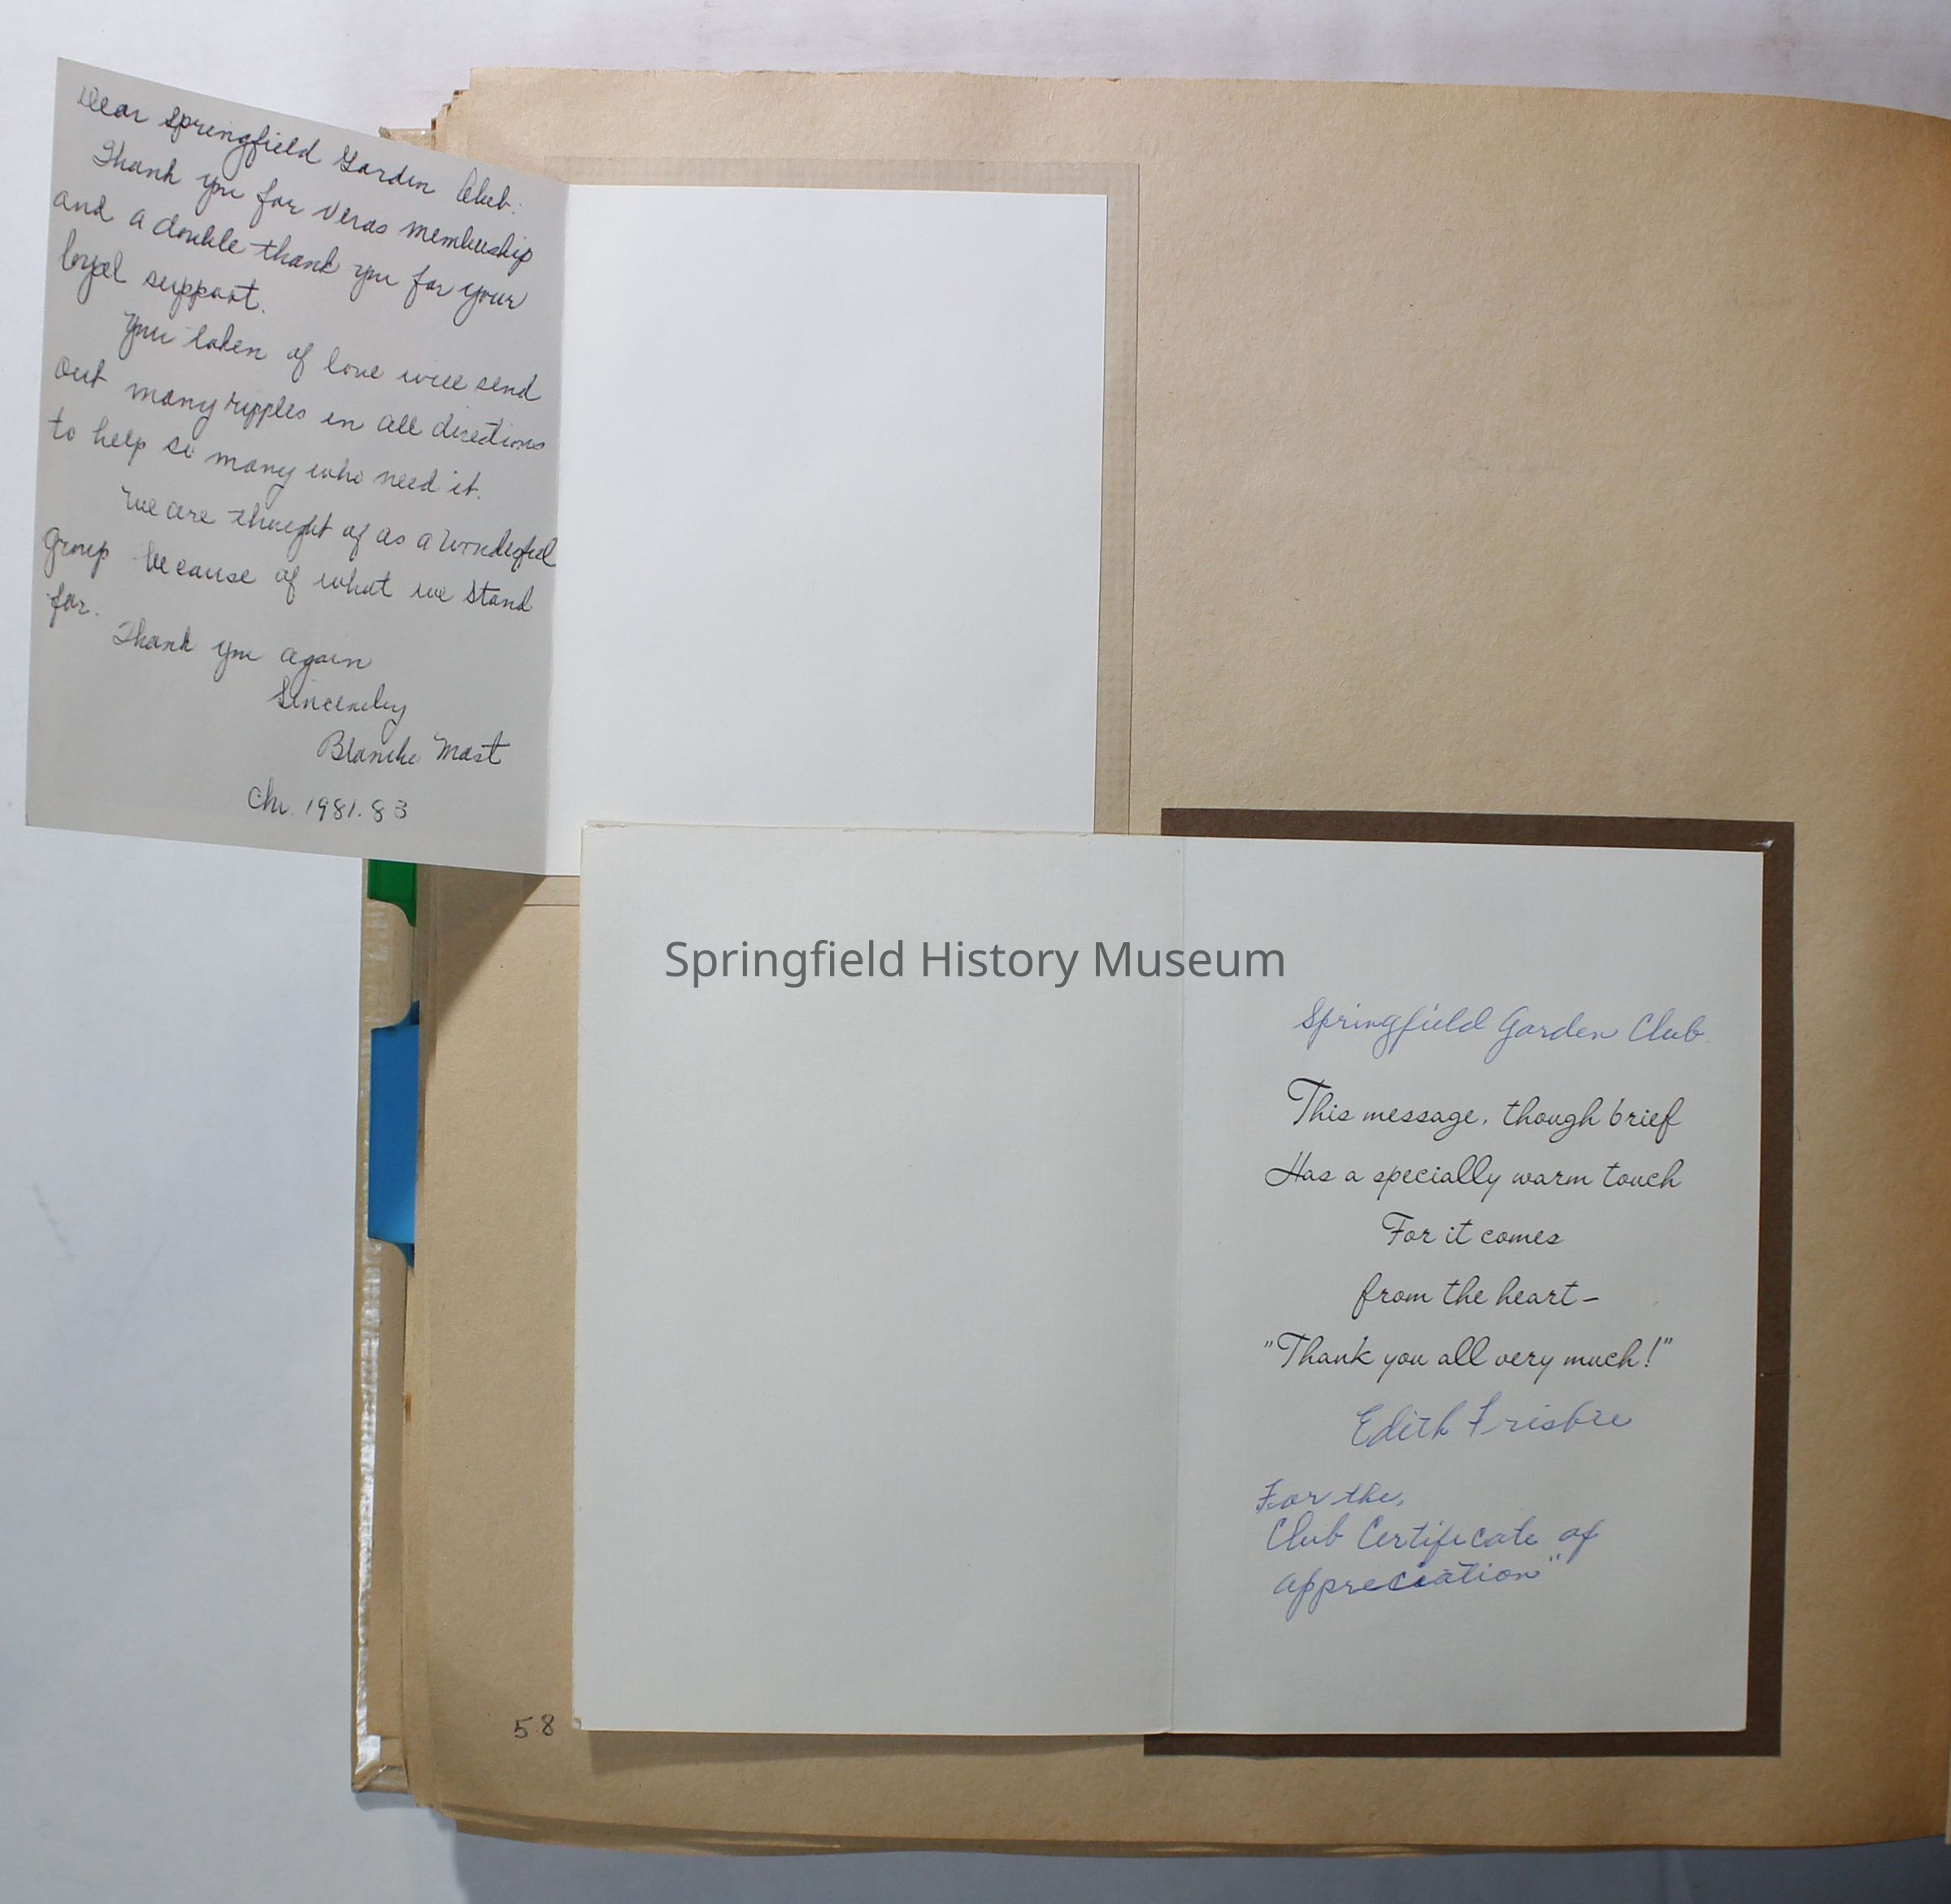 Dear Springfield Garden Club:
Thank you for Veras membership
and a double thank you for your
loyal support.
Your token of love will send
out many ripples in all directions
to help so many who need it.
We are thought of as a wonderful
group because of what we stand
for.
Thank you again
Sincerely
Blanche Mast
Chr. 1981.83
Springfield History Museum
Springfield Garden Club.
This message, though brief
Has a specially warm touch
For it comes
from the heart–
"Thank you all very much!"
Edith Frisbie
For the,
Club Certificate of
Appreciation"
58